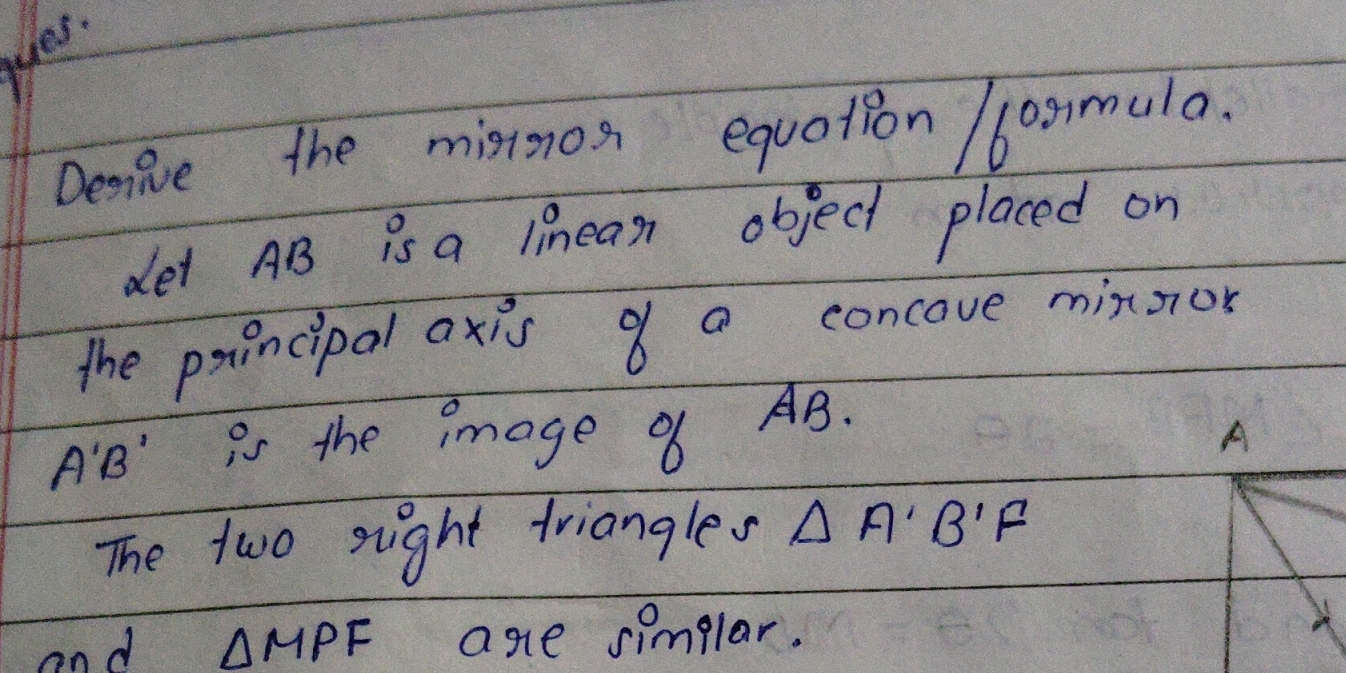 ques.
Derive the mirror equation / formula.
Let AB is a linear object placed on
the principal axis of a concave mirror
A'B' is the image of AB.
A
The two right triangles Δ A'B'F
and ΔMPF are similar.